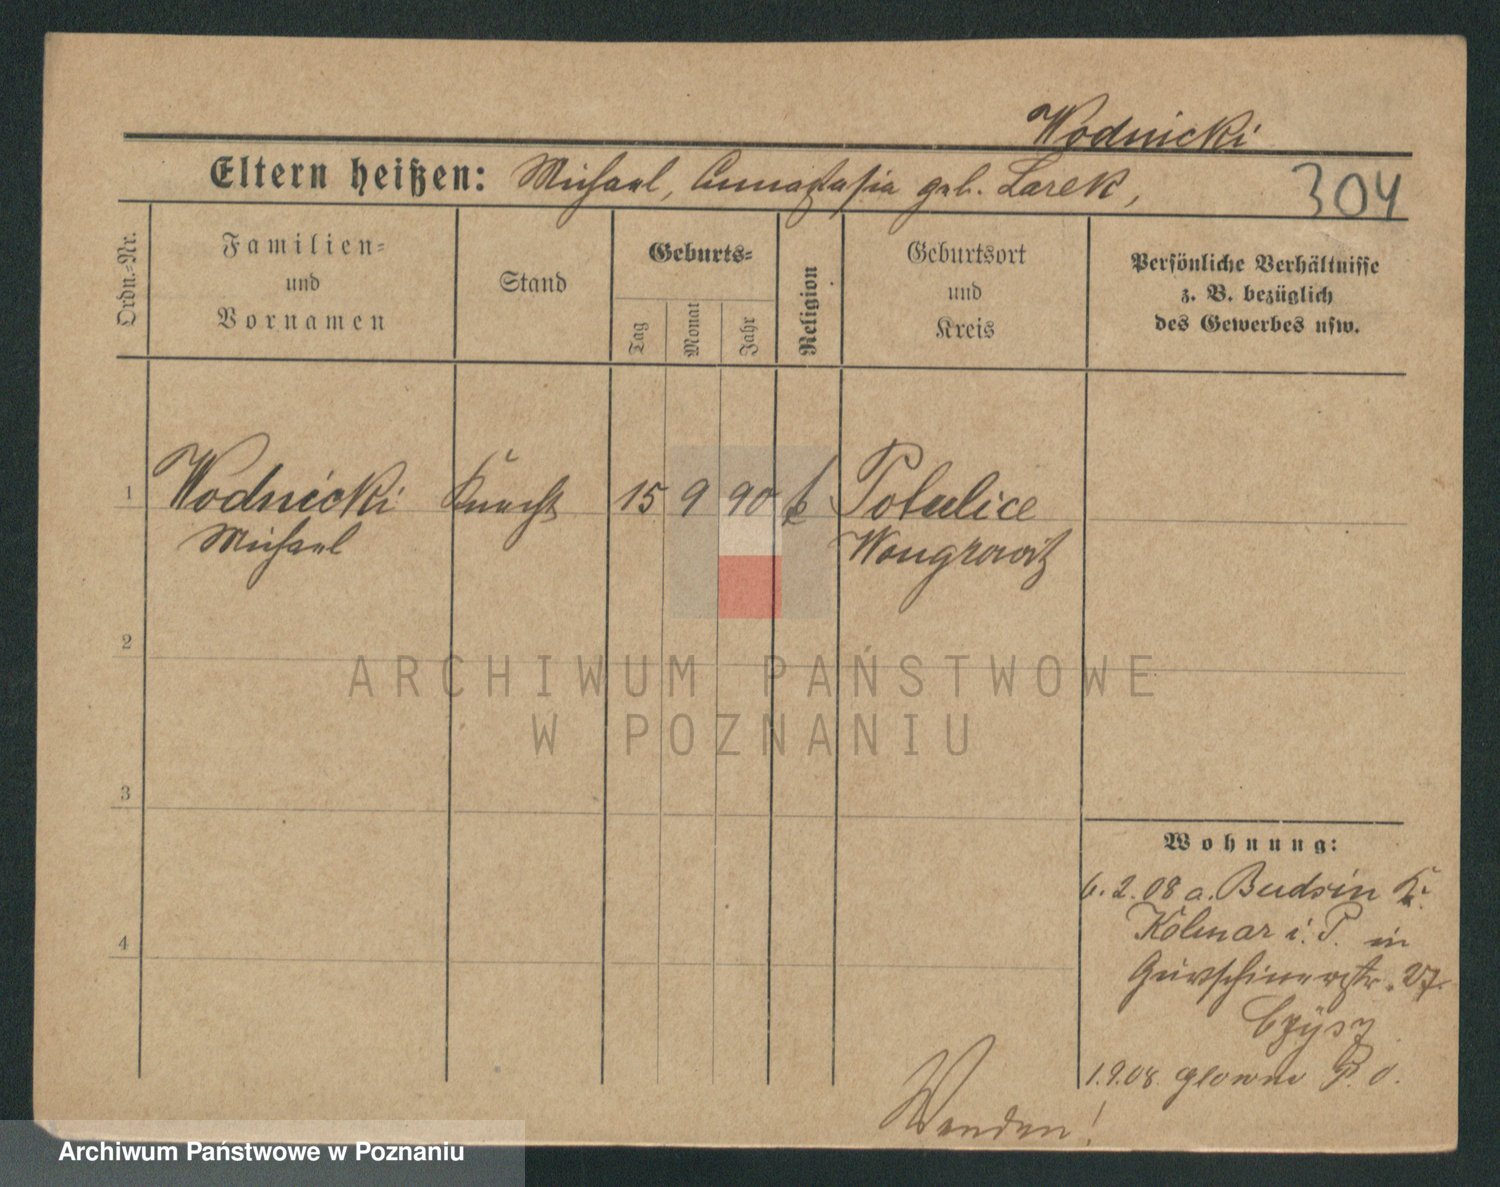 Wodnicki
Eltern heißen: Michael, Annastasia geb. Larek,
304
Ordn.-Nr.
Familien-
und
Vornamen
Stand
Geburts-
Tag
Monat
Jahr
Religion
Geburtsort
und
Kreis
Persönliche Verhältnisse
z. B. bezüglich
des Gewerbes usw.
1
Wodnicki
Michael
Knecht
15
9
90
k
Potulice
Wongrowitz
2
3
4
ARCHIWUM PAŃSTWOWE
W POZNANIU
Wohnung:
6.2.08 a. Budsin K.
Kolmar i. P. in
Gurtschinerstr. 27.
1.9.08. Glowno P. O.
Wenden!
Archiwum Państwowe w Poznaniu